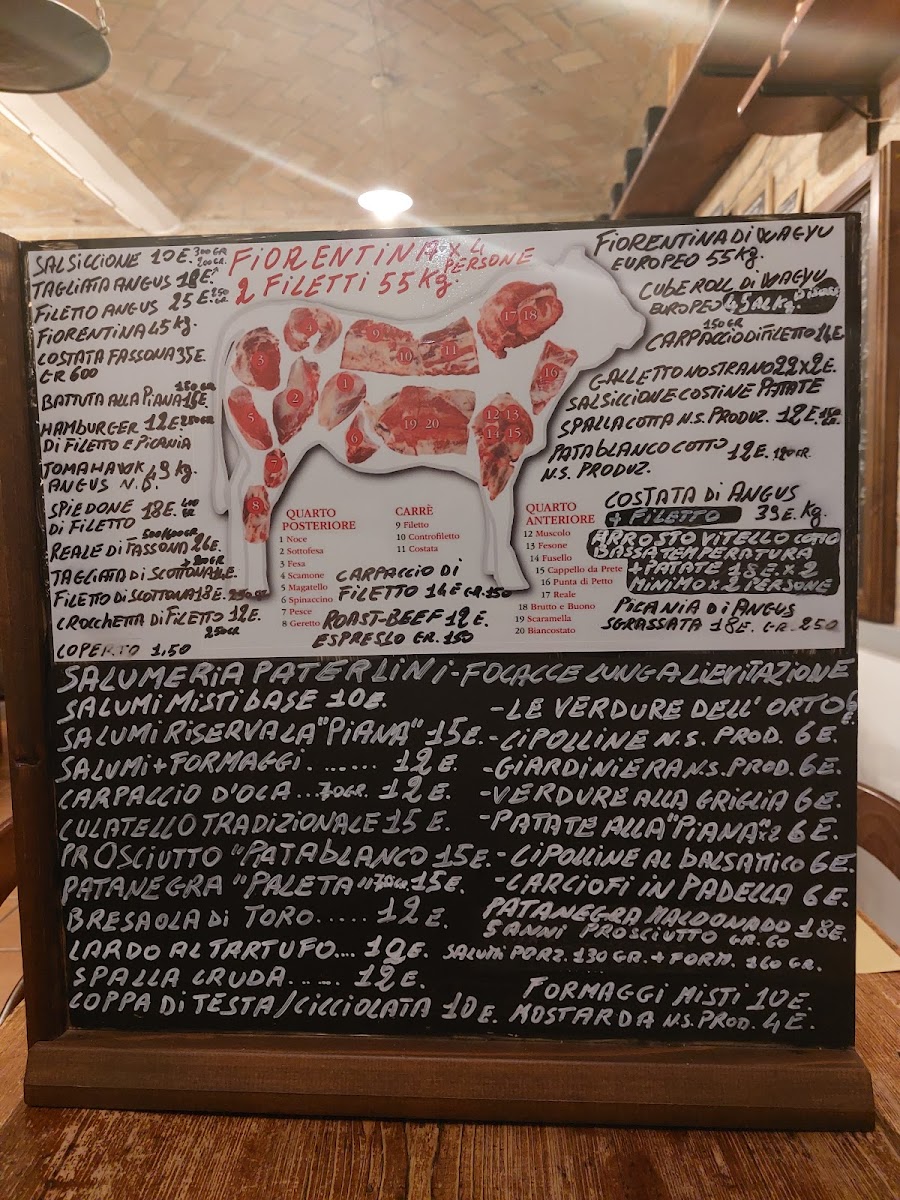 SALSICCIONE 10E. 300GR
TAGLIATA ANGUS 18E. 200GR.
FILETTO ANGUS 25E. 250 GR
FIORENTINA 45 Kg.
COSTATA FASSONA 35E.
GR 600
BATTUTA ALLA PIANA 15E. 150GR
HAMBURGER 12E. 250GR
DI FILETTO E PICANIA
TOMAHAWK 49 Kg.
ANGUS N.D.
SPIEDONE 18E.
DI FILETTO
REALE DI FASSONA 26E.
TAGLIATA DI SCOTTONA E.
FILETTO DI SCOTTONA 18E.
CROCCHETTA DI FILETTO 12E.
250GR
COPERTO 1,50
FIORENTINA x 4
PERSONE
2 FILETTI 55 Kg.
FIORENTINA DI WAGYU
EUROPEO 55 Kg.
CUBEROLL DI WAGYU
EUROPEO 45 AL Kg.
150GR
CARPACCIO DI FILETTO 14E.
GALLETTO NOSTRANO 22x2E.
SALSICCIONE COSTINE PATATE
SPALLA COTTA N.S. PRODUZ. 12E.
PATABLANCO COTTO 12E. 120GR.
N.S. PRODUZ.
COSTATA DI ANGUS
+ FILETTO 39E. Kg.
ARROSTO VITELLO COTTO
BASSA TEMPERATURA
+ PATATE 18E x 2
MINIMO x 2 PERSONE
PICANIA DI ANGUS
SGRASSATA 18E. GR. 250
1
2
3
4
5
6
7
8
9
10
11
12
13
14
15
16
17
18
19
20
QUARTO
POSTERIORE
1 Noce
2 Sottofesa
3 Fesa
4 Scamone
5 Magatello
6 Spinaccino
7 Pesce
8 Geretto
CARRÈ
9 Filetto
10 Controfiletto
11 Costata
QUARTO
ANTERIORE
12 Muscolo
13 Fesone
14 Fusello
15 Cappello da Prete
16 Punta di Petto
17 Reale
18 Brutto e Buono
19 Scaramella
20 Biancostato
CARPACCIO DI
FILETTO 14E GR.150
ROAST-BEEF 12E.
ESPRESLO GR. 150
SALUMERIA PATERLINI - FOCACCE LUNGA LIEVITAZIONE
SALUMI MISTI BASE 10E.
SALUMI RISERVA LA "PIANA" 15E.
SALUMI + FORMAGGI ....... 12E.
CARPACCIO D'OCA ...70GR. 12E.
CULATELLO TRADIZIONALE 15E.
PROSCIUTTO "PATABLANCO 15E.
PATANEGRA "PALETA" 70GR 15E.
BRESAOLA DI TORO ..... 12E.
LARDO AL TARTUFO.... 10E.
SPALLA CRUDA ...... 12E.
COPPA DI TESTA/CICCIOLATA 10E.
- LE VERDURE DELL'ORTO
- CIPOLLINE N.S. PROD. 6E.
- GIARDINIERA N.S. PROD. 6E.
- VERDURE ALLA GRIGLIA 6E.
- PATATE ALLA "PIANA" x2 6E.
- CIPOLLINE AL BALSAMICO 6E.
- CARCIOFI IN PADELLA 6E.
PATANEGRA MALDONADO 18E.
5 ANNI PROSCIUTTO GR. 60
SALUMI PORZ. 130 GR. + FORM. 160 GR.
FORMAGGI MISTI 10E.
MOSTARDA N.S. PROD. 4E.